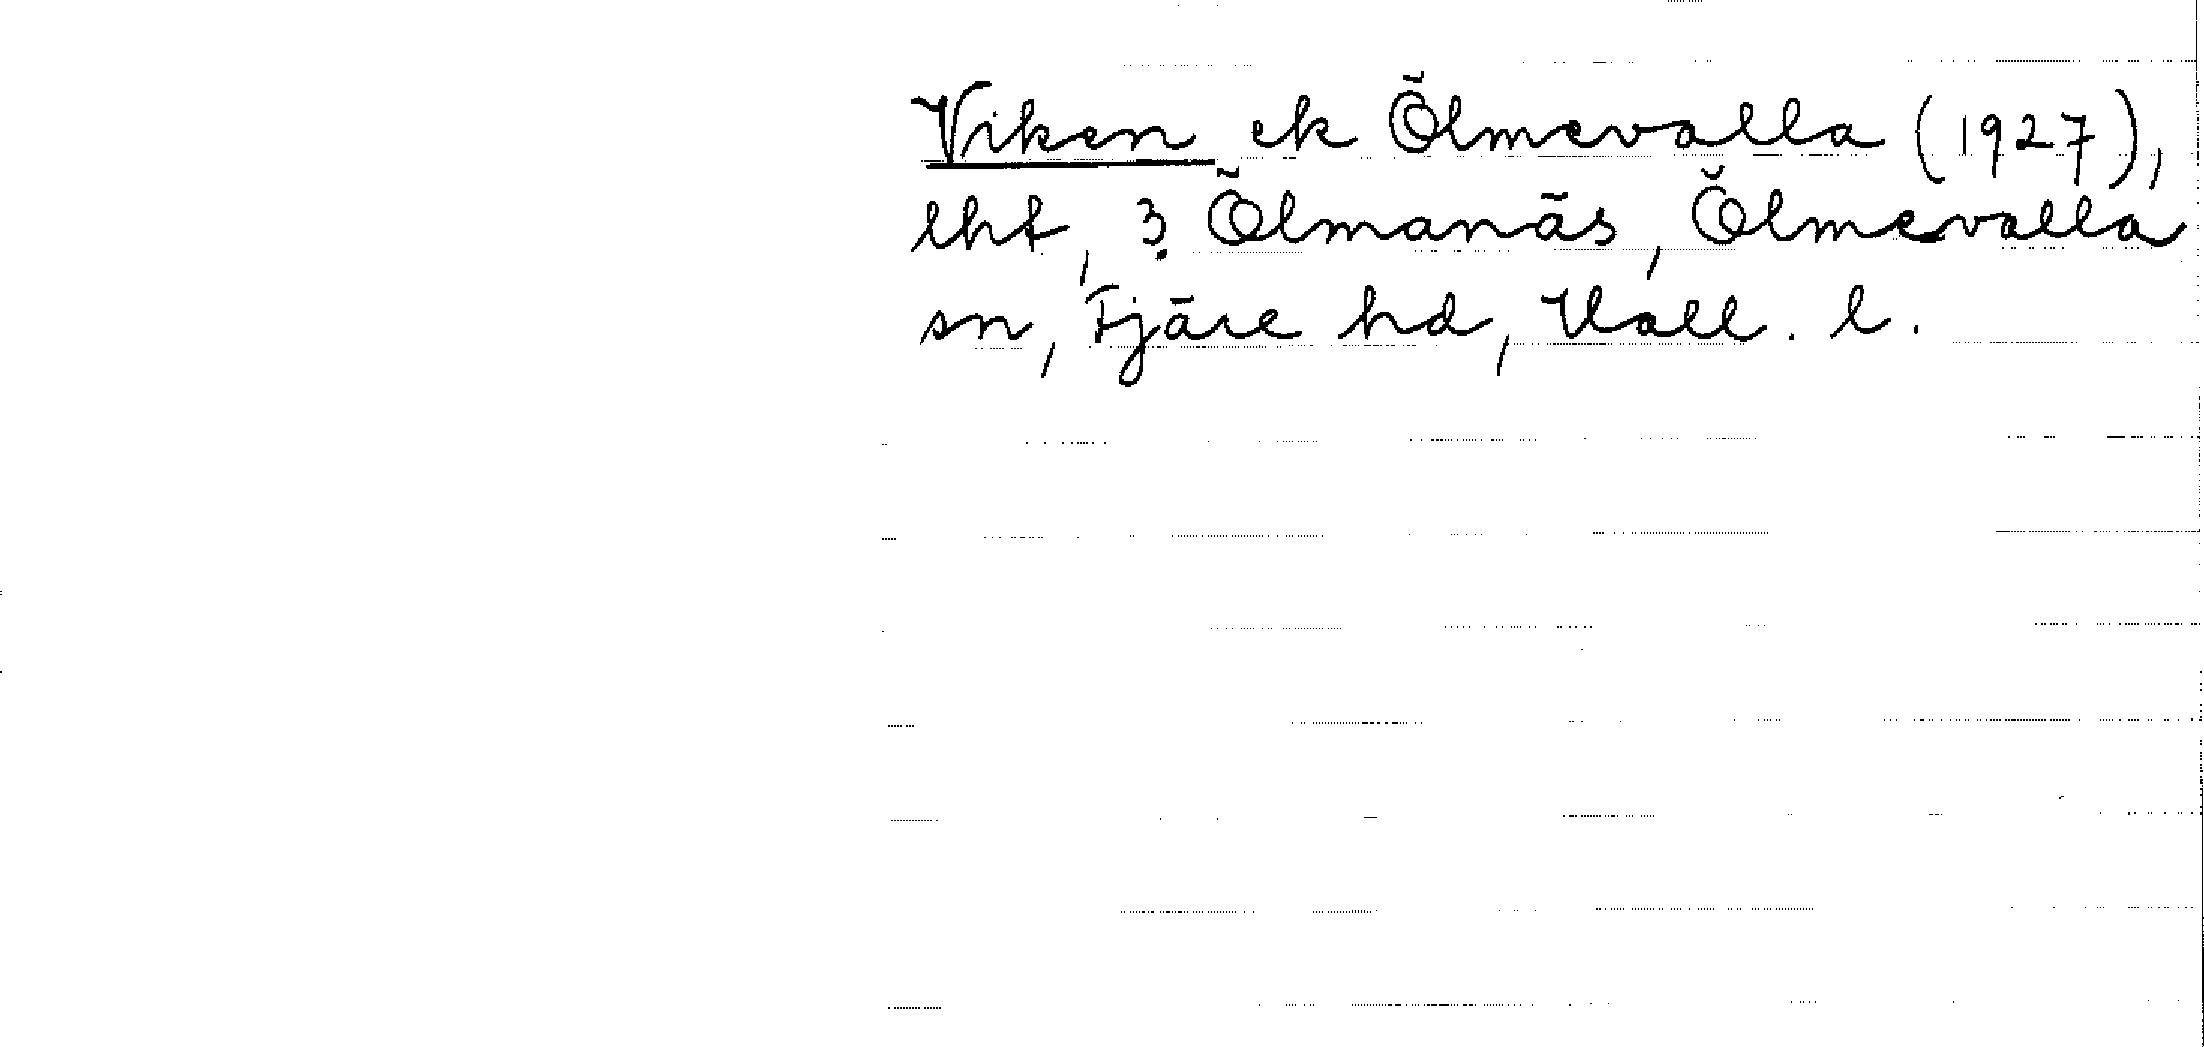 Viken ek Ölmevalla (1927),
lht, 3 Ölmanäs, Ölmevalla
sn, Fjäre hd, Hall. l.